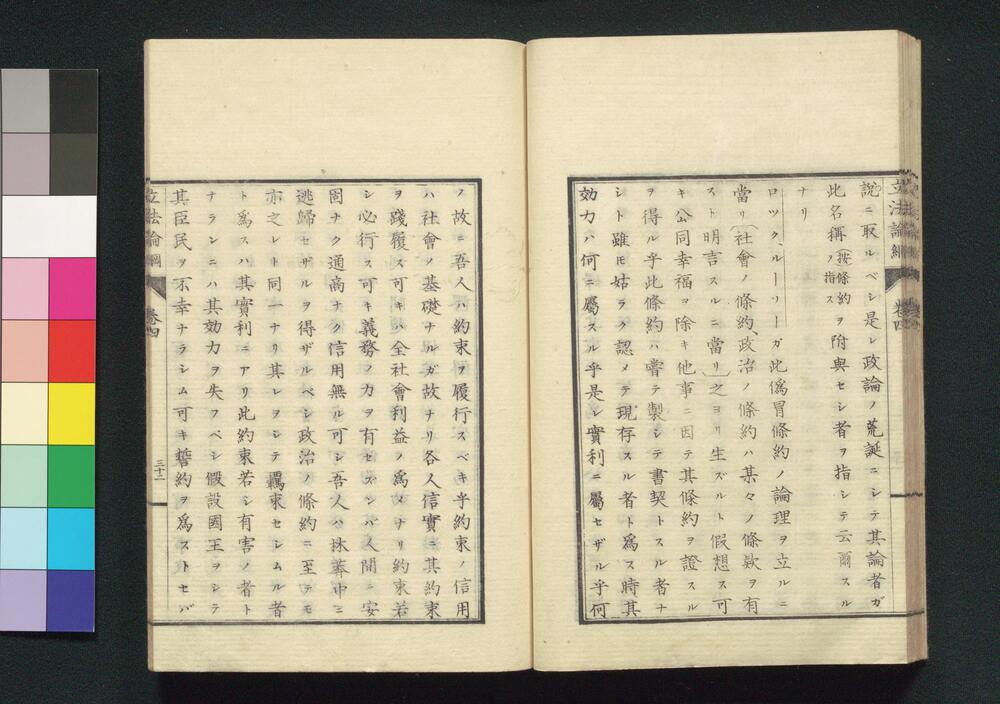 説ニ取ルベシ是レ政論ノ荒誕ニシテ其論者ガ
此名稱(按條約ヲ指ス)ヲ附與セシ者ヲ指シテ云爾スル
ナリ
ロツク、ルーリーガ此僞冒條約ノ論理ヲ立ルニ
當リ(社會ノ條約、政治ノ條約ハ某々ノ條欵ヲ有
スト明言スルニ當リ)之ヨリ生ズルト假想ス可
キ公同幸福ヨ除キ他事ニ因テ其條約ヲ證スル
ヲ得ル乎此條約ハ嘗テ製シテ書契トスル者ナ
シト雖ㇳモ姑ラク認メテ現存スル者ト爲ス時其
効力ハ何ニ屬スル乎是レ實利ニ屬セザル乎何
立法論綱
卷四
ノ故ニ吾人ハ約束ヲ履行スベキ乎約束ノ信用
ハ社會ノ基礎ナルガ故ナリ各人信實ニ其約束
ヲ踐履ス可キハ全社會利益ノ爲メナリ約束若
シ必行ス可キ義務ノ力ヲ有セズンバ人間ニ安
固ナク通商ナク信用無ル可シ吾人ハ林莽中ニ
逃歸セザルヲ得ザルベシ政治ノ條約ニ至テモ
亦之レト同一ナリ其レヲシテ羈束セシムル者
ト爲スハ其實利ニアリ此約束若シ有害ノ者ト
ナランニハ其効力ヲ失フベシ假設國王ヲシテ
其臣民ヲ不幸ナラシム可キ誓約ヲ爲ストセバ
立法論綱
卷四
三十二